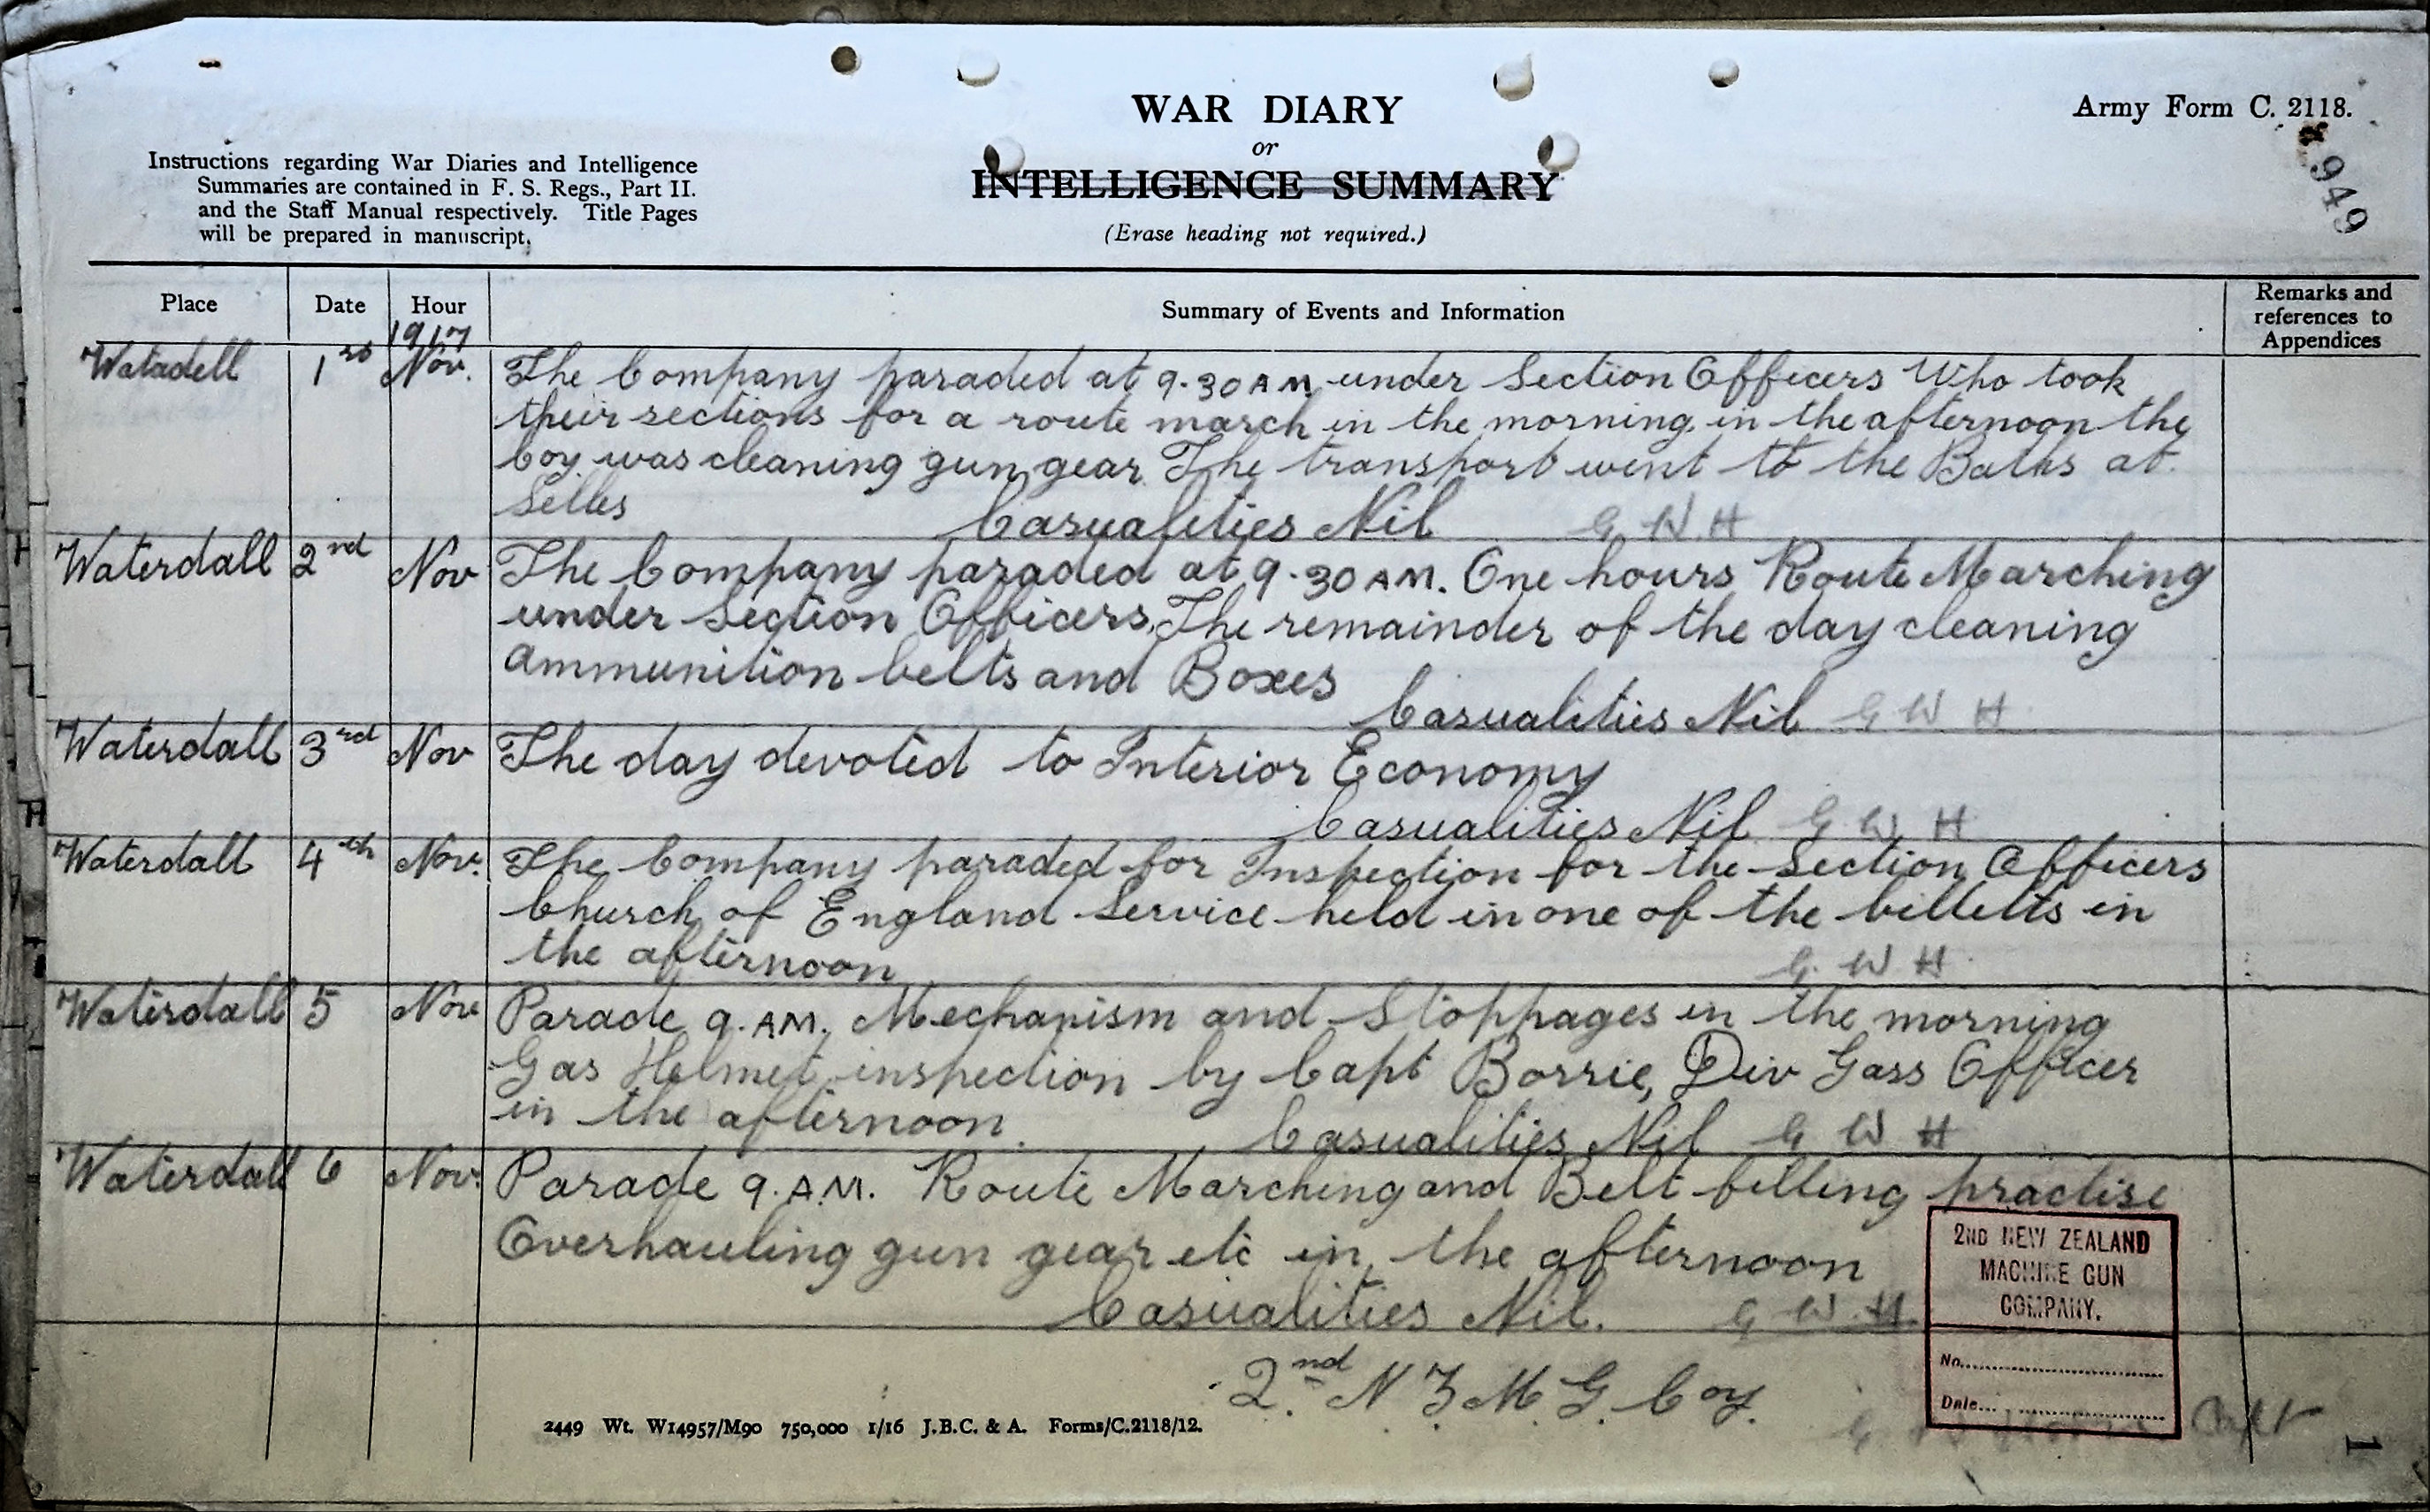 WAR DIARY
or
INTELLIGENCE SUMMARY
(Erase heading not required.)
Army Form C. 2118.
949
Instructions regarding War Diaries and Intelligence
Summaries are contained in F. S. Regs., Part II.
and the Staff Manual respectively. Title Pages
will be prepared in manuscript.
Place Date Hour Summary of Events and Information Remarks and references to Appendices
1917
Watadell 1st Nov. The Company paraded at 9.30 AM under Section Officers Who took
their sections for a route march in the morning, in the afternoon the
Coy was cleaning gun gear The transport went to the Baths at
Selles
Casualities Nil G W. H
Waterdall 2nd Nov The Company paraded at 9.30 AM. One hours Route Marching
under Section Officers, The remainder of the day cleaning
ammunition belts and Boxes
Casualities Nil G W H
Waterdall 3rd Nov The day devoted to Interior Economy
Casualities Nil G W H
Waterdall 4th Nov. The Company paraded for Inspection for the Section Officers
Church of England Service held in one of the billetts in
the afternoon G. W H
Waterdall 5 Nov Parade 9. AM. Mechanism and Stoppages in the morning
Gas Helmet inspection by Capt Borrie, Div Gass Officer
in the afternoon. Casualities Nil G W H
Waterdall 6 Nov. Parade 9. A.M. Route Marching and Belt filling practise
Overhauling gun gear etc in the afternoon
Casualities Nil. G W H.
2nd N Z M G Coy.
2ND NEW ZEALAND
MACHINE GUN
COMPANY.
No.
Date
Capt
2449 Wt. W14957/M90 750,000 1/16 J.B.C. & A. Forms/C.2118/12.
1